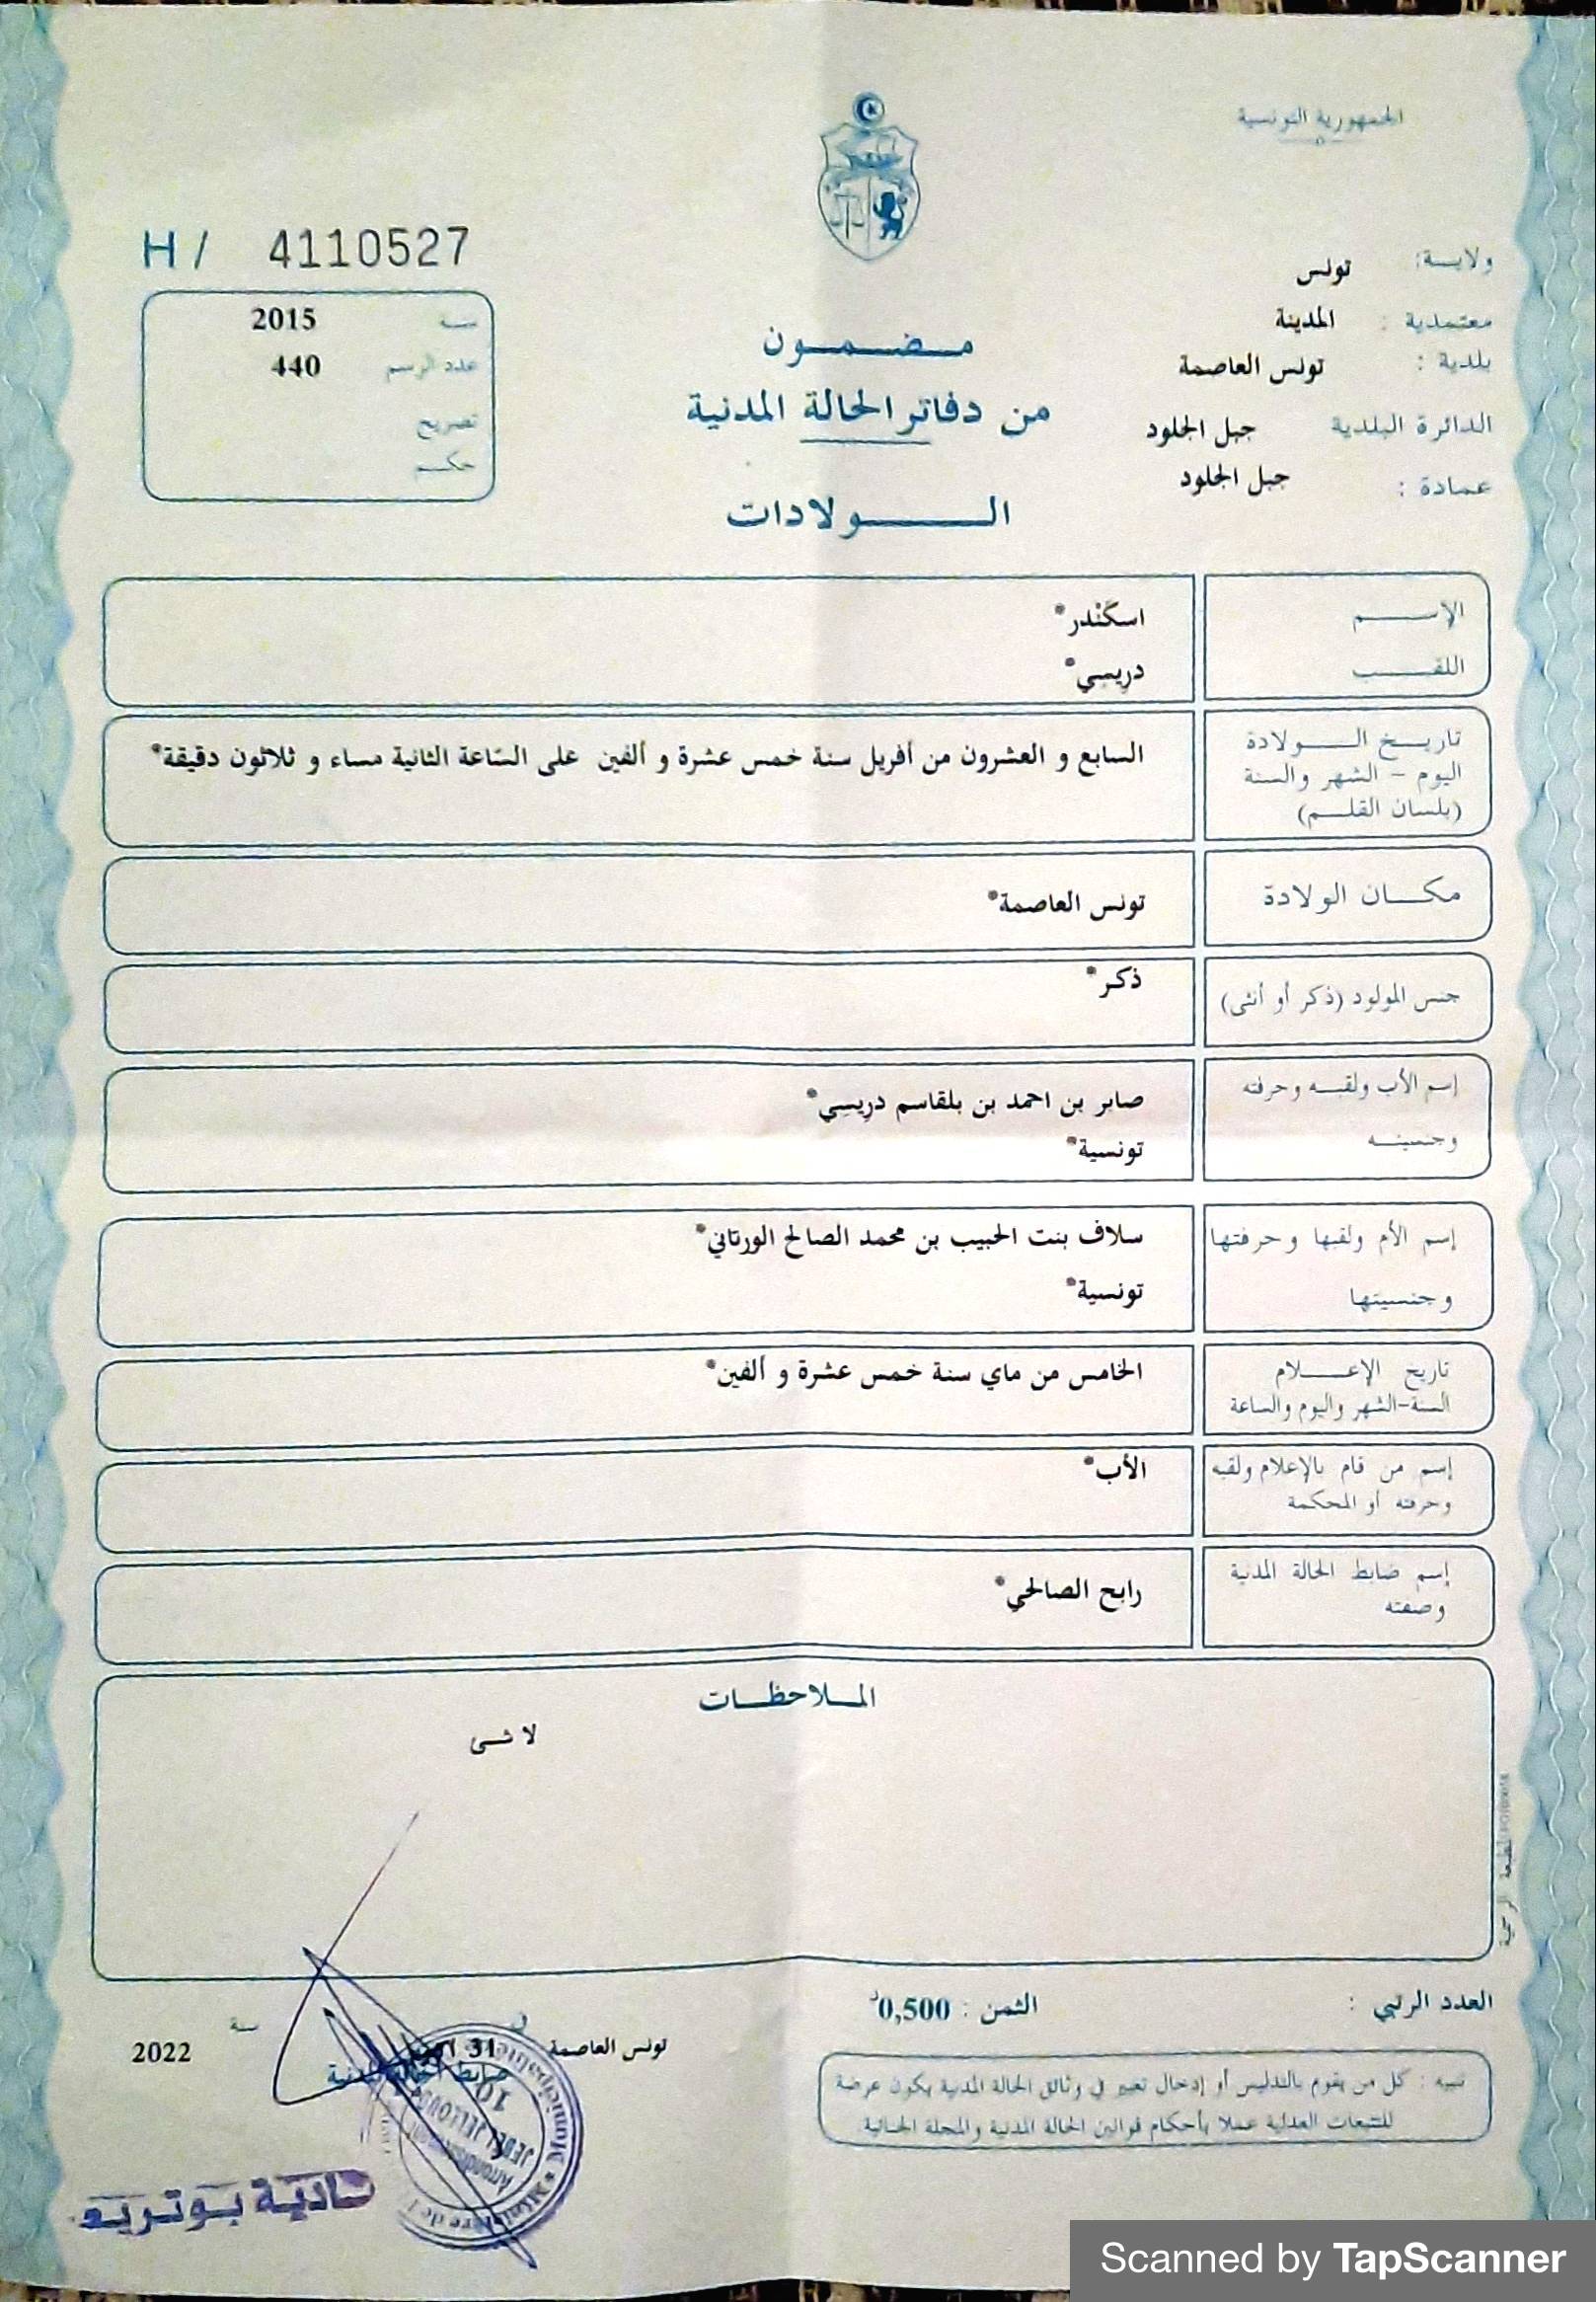 الجمهورية التونسية
ولايـــة: تونس
معتمدية : المدينة
بلدية : تونس العاصمة
الدائرة البلدية جبل الجلود
عمادة : جبل الجلود
H / 4110527
سنة 2015
عدد الرسم 440
تصريح
حكم
مـضـمـون
من دفاتر الحالة المدنية
الـــولادات
الإســـم اسكَنْدر
اللقــب درِيسِي
تاريـــخ الـــولادة
اليوم - الشهر والسنة
(بلسان القلـــم)
السابع و العشرون من أفريل سنة خمس عشرة و ألفين على السّاعة الثانية مساء و ثلاثون دقيقة
مكـــان الولادة تونس العاصمة
جنس المولود (ذكر أو أنثى) ذكر
إسم الأب ولقبـه وحرفته صابر بن احمد بن بلقاسم درِيسِي
وجنسيتـه تونسية
إسم الأم ولقبها وحرفتها سلاف بنت الحبيب بن محمد الصالح الورتاني
وجنسيتها تونسية
تاريخ الإعـــلام
السنة-الشهر واليوم والساعة
الخامس من ماي سنة خمس عشرة و ألفين
إسم من قام بالإعلام ولقبه
وحرفته أو المحكمة
الأب
إسم ضابط الحالة المدنية
وصفته
رابح الصالحي
المـلاحظـات
لا شى
المطبعة الرسمية
العدد الرتبي :
الثمن : 0,500د
تنبيه : كل من يقوم بالتدليس أو إدخال تغيير في وثائق الحالة المدنية يكون عرضة
للتتبعات العدلية عملا بأحكام قوانين الحالة المدنية والمجلة الجنائية
تونس العاصمة في 31 سنة 2022
ضابط الحالة المدنية
Municipalité
Ministère de l'
Arrondissement
JEBEL JELLOUD
10
نادية بوتريعة
Scanned by TapScanner